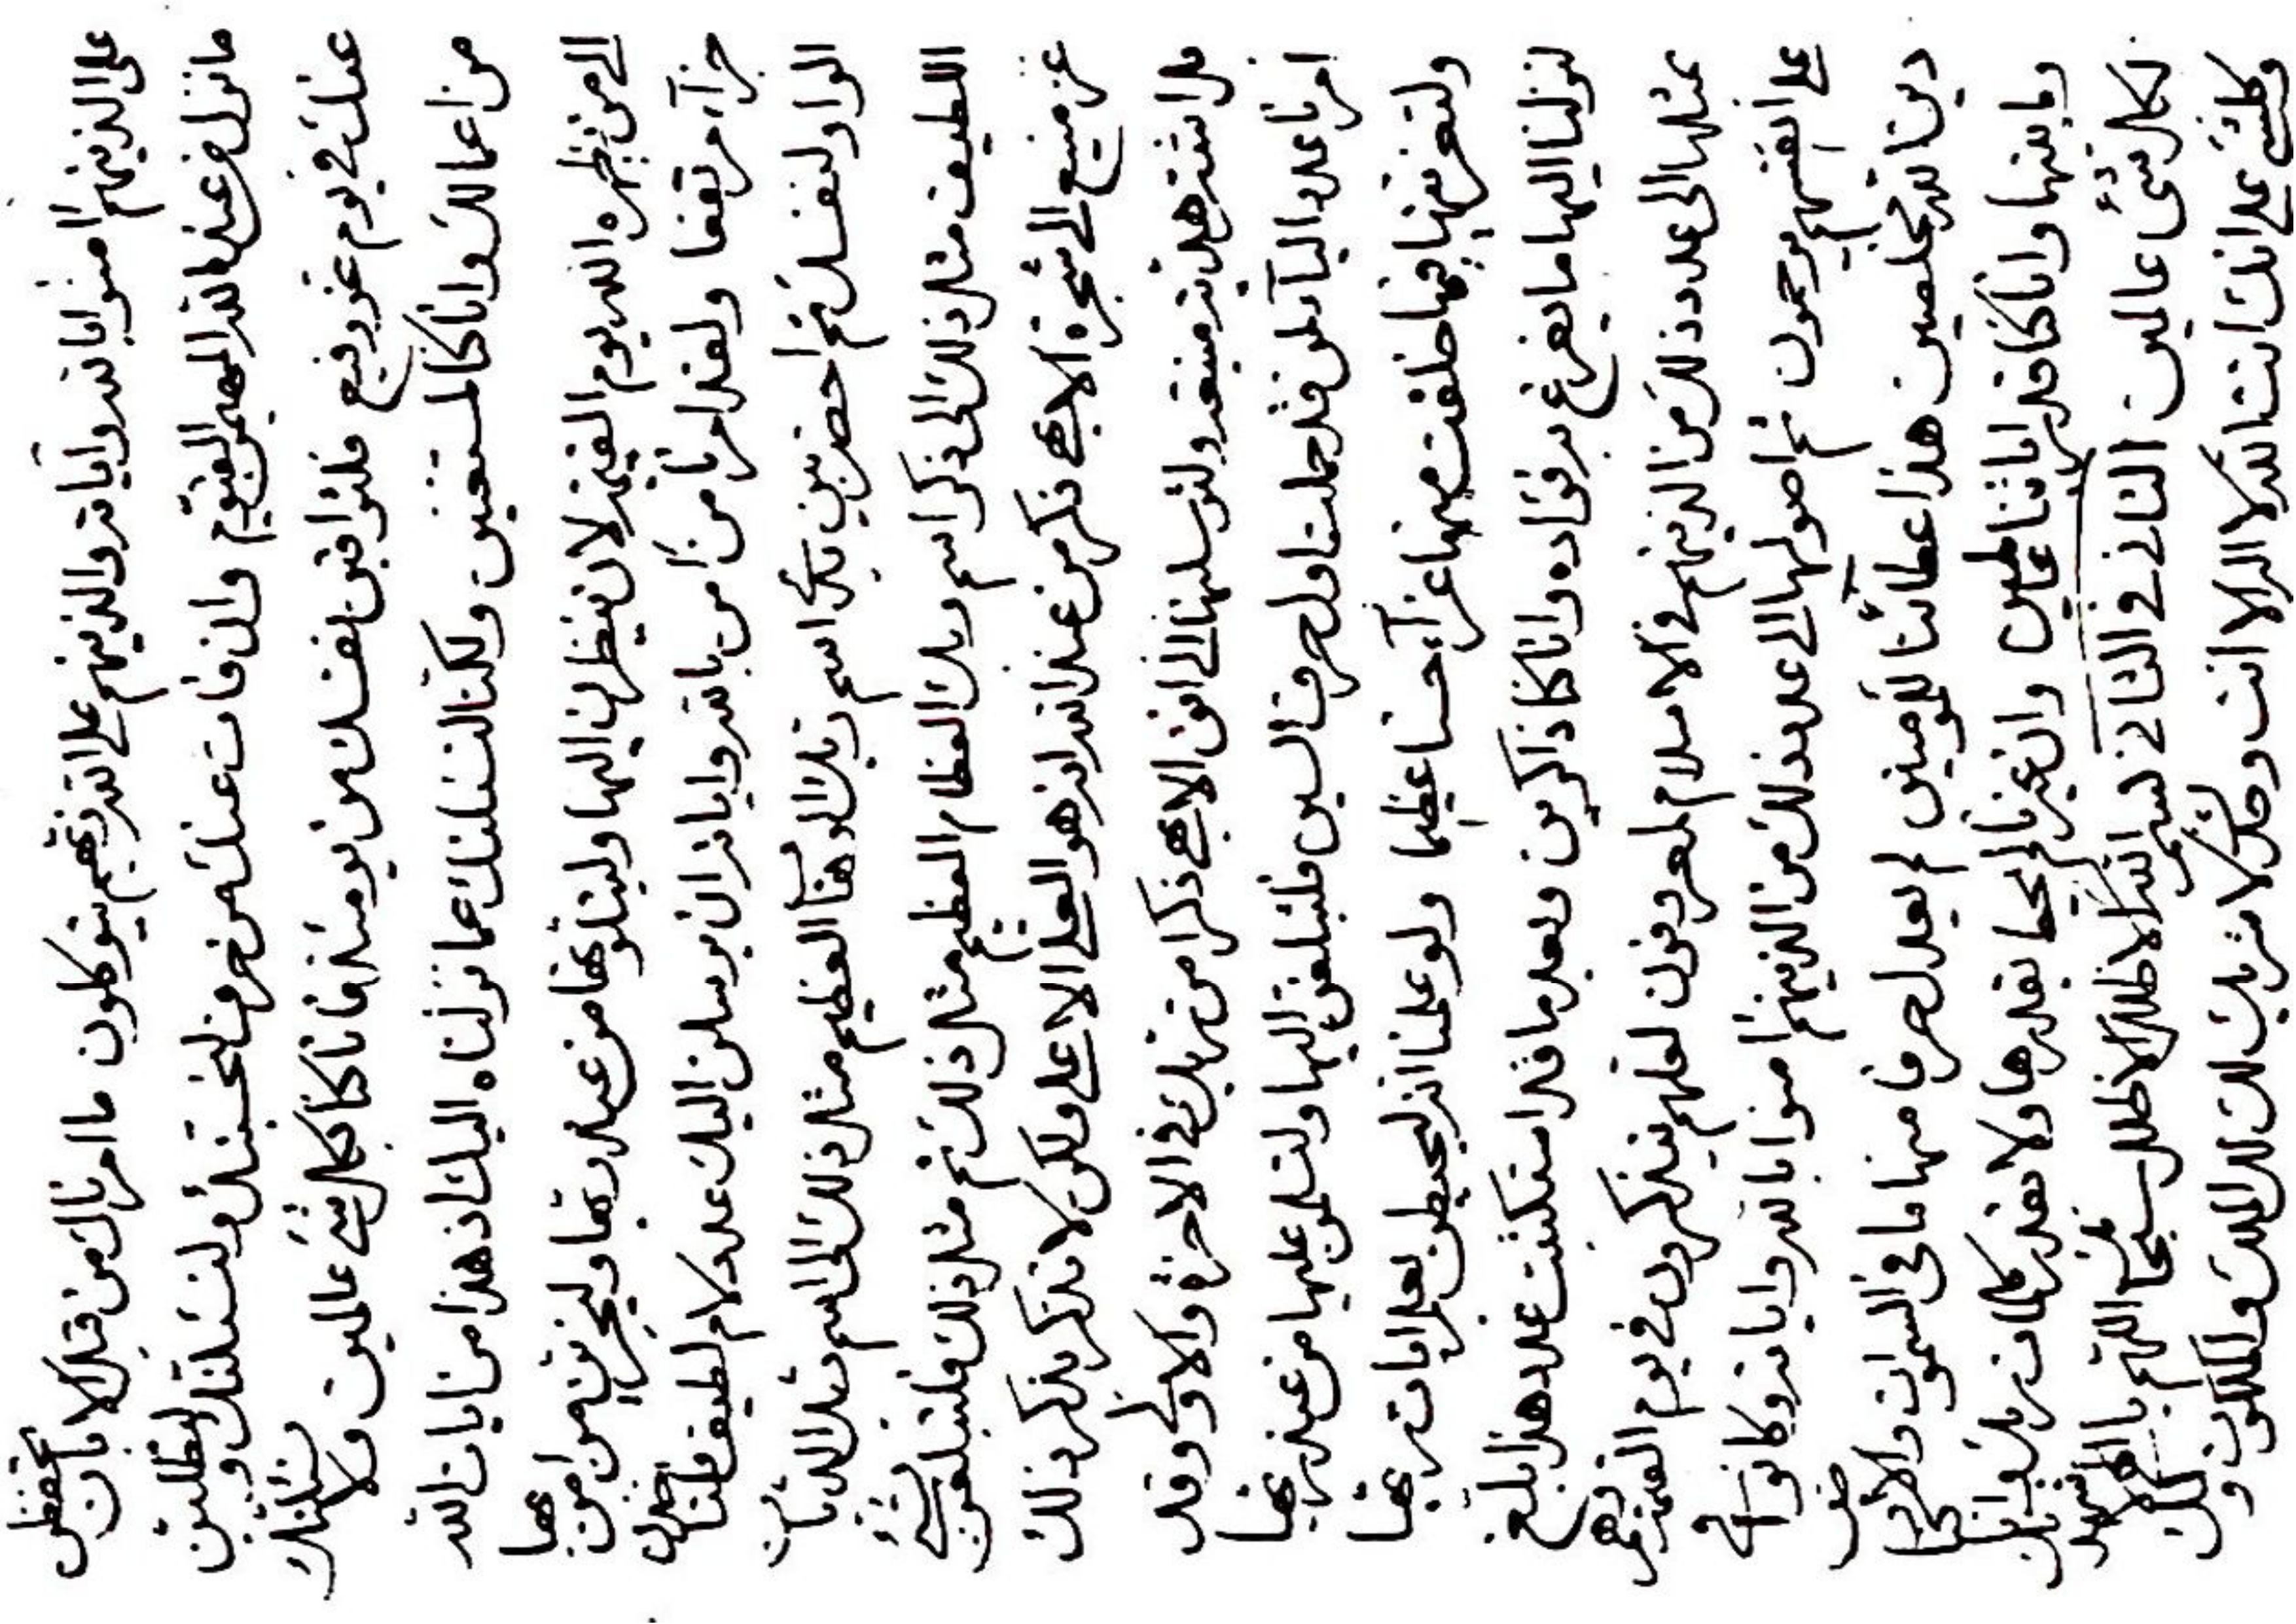 على الذينهم امنوا بالله واياته والذينهم على الله ربهم يتوكلون ما امرناك من قبل الا بان تحفظن
ما نزل من عند الله المهيمن القيوم وان فات عنك من حرف لنحسبنك ولنسئلنك
عنك في يوم عز رفيع فلتراقبن نفسك من يومئذ فانا كنا بكل شئ عالمين ولا نسئلنك
من اعمالك وانا كنا لمستغنين ولكنا لنسئلنك عما نزلناه اليك اذ هذا من ايات الله
الى من يظهره الله يوم القيمة لان ينظرن اليها من عند ربها وليجزين من امن بها
جزآء مرتفعا ولقد امرنا من امن بالله واياته ان يرسلن اليك عدد لام لطيف
الواو لنفسك ثم احضر بين يدي اسم ربك العظيم مثل ذلك الى اسم
اللطيف مثل ذلك الى ذكر اسم ربك العظام العظيم مثل ذلك ثم مثل ذلك فلتبلغن
عز منيع الى شجرة الابهى ذكر من عند الله انه هو العلى الاعلى ولكن لا تذكر بذكر ذلك
من ربك في الاخرة والاولى وقد
امرنا عدد البآء لمن قد حملنا ولحرف السين فلتبلغن اليها ولتسلمن عليها من عند ربها
ولتعزينها فيما خلقت منها عزآء حسنا عظيما ولو علمنا انه ليحيطن بعلم ايات ربها
لنزلنا اليها ما يفرغ به فؤاده وانا كنا ذاكرين وبعد ما قد استكتبت عدد هذا بلغ
مثلها الى عدد ذلك من الذينهم في الاسلام لمعروفون لعلهم يتذكرون في يوم القيمة وهم
على انفسهم يرحمون ثم اصولها الى عدد ذلك من الذينهم امنوا بالله واياته وكانوا في
دين الله مخلصين هذا عطائنا للمؤمنين لم يعدل حرفا منها ما في السموات والارض
وما بينهما وانا كنا قدر اياتنا لعالمين وان غيرنا لم يحط بقدرها ولا بقدر كلمات ربك وانا كنا
لكل شئ عالمين الثاني في الثاني بسم الله الاظلل الاظلل سبحانك اللهم يا الهى لاشهدنك
وكلشئ على انك انت الله لا اله الا انت وحدك لا شريك لك لك الملك والملكوت ولك